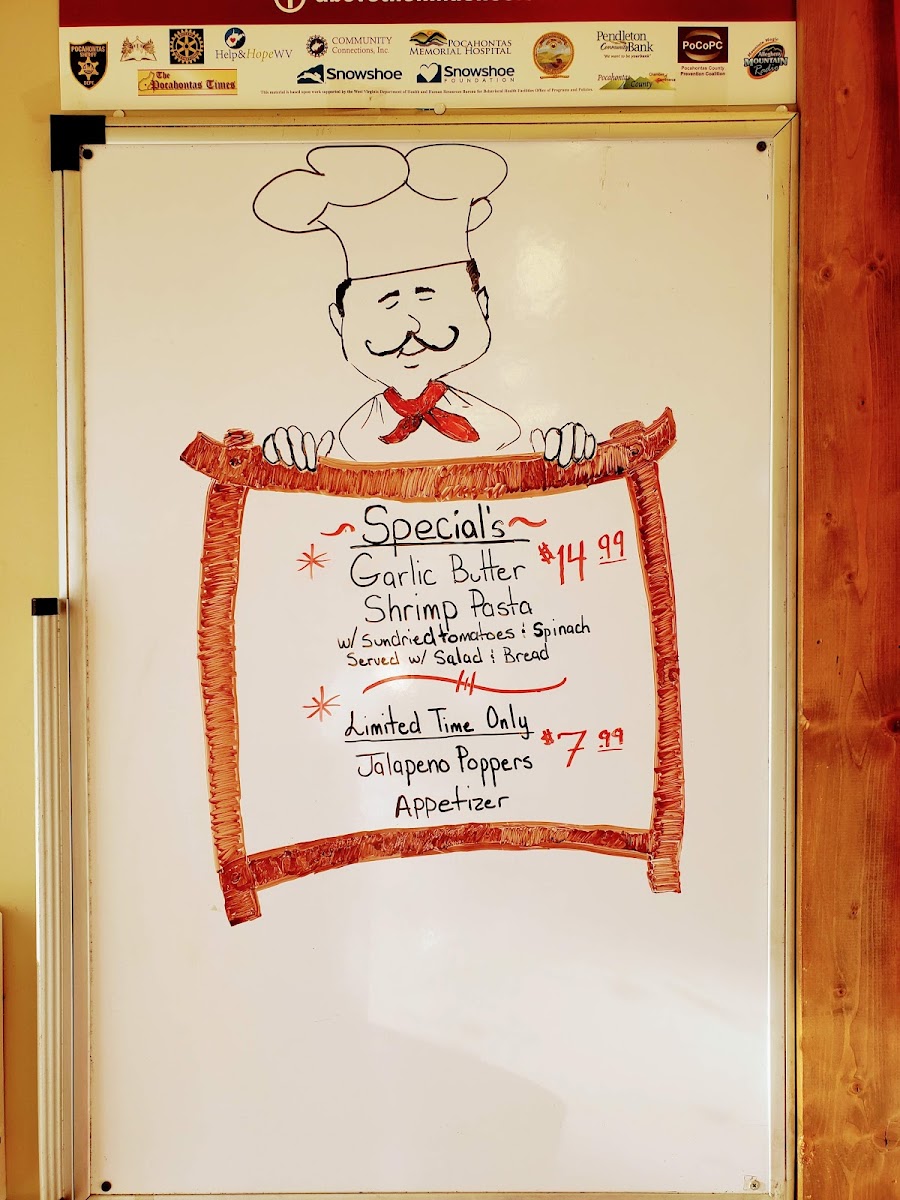 POCAHONTAS
SHERIFF
DEPT.
Help&HopeWV
COMMUNITY
Connections, Inc.
POCAHONTAS
MEMORIAL HOSPITAL
Pendleton
Community Bank
PoCoPC
Pocahontas County
Prevention Coalition
Allegheny
MOUNTAIN
Radio
The
Pocahontas Times
Snowshoe
Snowshoe
FOUNDATION
Pocahontas
County
This material is based upon work supported by the West Virginia Department of Health and Human Resources Bureau for Behavioral Health Facilities Office of Programs and Policies.
~Special's~
Garlic Butter $14.99
Shrimp Pasta
w/ Sundried tomatoes & Spinach
Served w/ Salad & Bread
Limited Time Only
Jalapeno Poppers $7.99
Appetizer